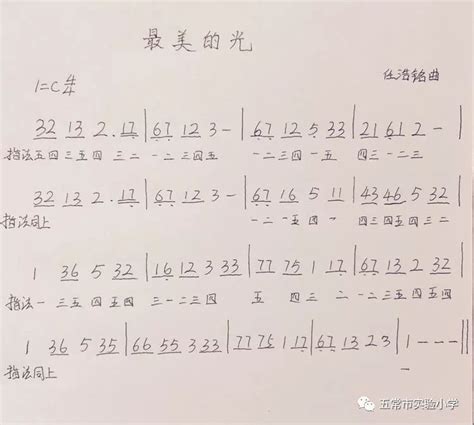 最美的光
1=C 4/4
任浩铭曲
32 13 2.17|67 12 3-|67 12 5 33|21 61 2-|
指法五四 三五 四 三二 一二 三四五 一二三四 一五 四三 一二三
32 13 2.17|67 12 3-|67 16 5 11|43 46 5 32|
指法同上 一二 一五 四 一 四三四五四 三二
1 36 5 32|16 12 3 33|77 75 1 17|67 13 2 32|
指法一 三五 四 五四 三一二三四 五 四 三 二 一二三五 四 五四
1 36 5 35|66 55 3 33|77 75 1 17|67 13 2 3|1---||
指法同上 一
五常市实验小学